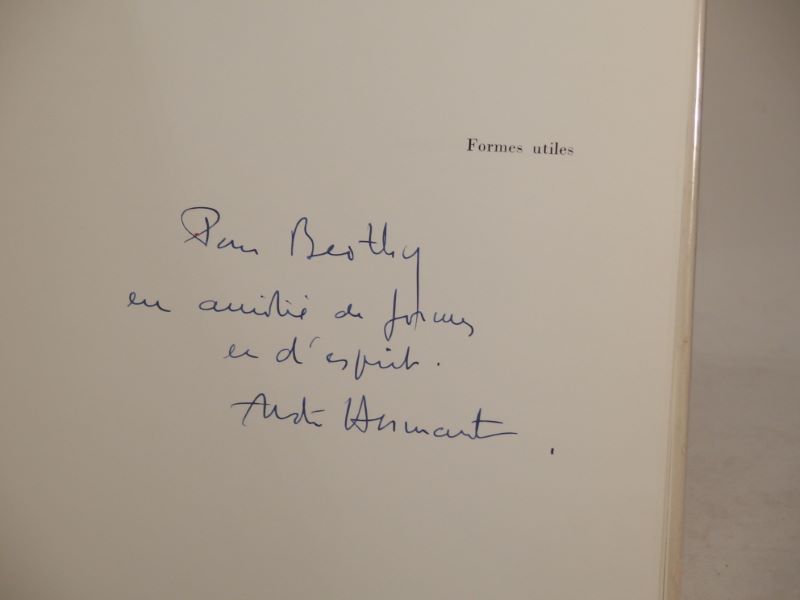 Formes utiles
Pour Beothy
en amitié de formes
et d'esprit.
André Hermant.